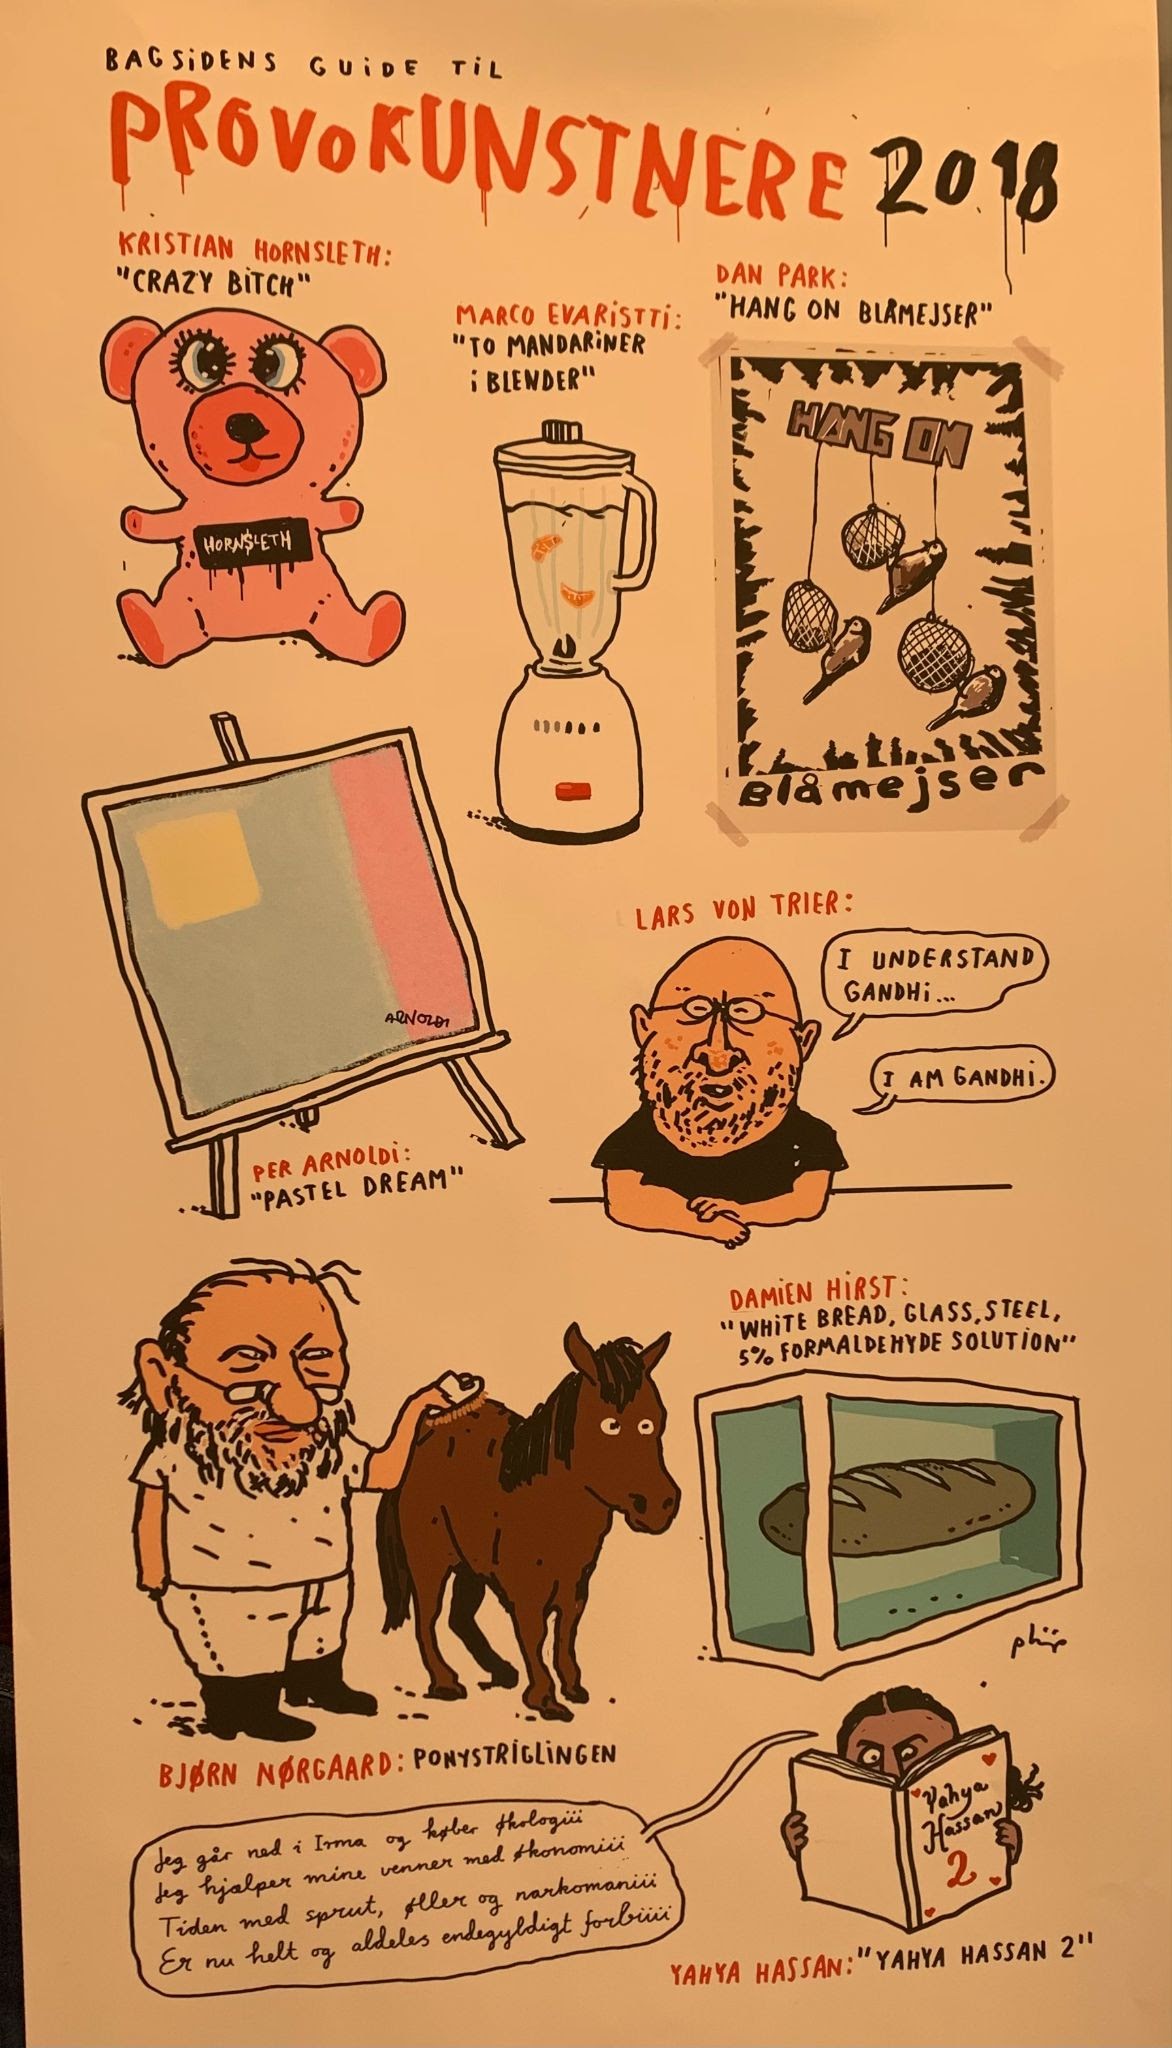 BAGSiDENS GUiDE TiL
PROVOKUNSTNERE 2018
KRISTIAN HORNSLETH:
"CRAZY BiTCH"
HORN$LETH
MARCO EVARiSTTi:
"TO MANDARiNER
i BLENDER"
DAN PARK:
"HANG ON BLÅMEJSER"
HANG ON
Blåmejser
ARNOLDI
PER ARNOLDi:
"PASTEL DREAM"
LARS VON TRIER:
I UNDERSTAND
GANDHi...
I AM GANDHi.
DAMiEN HiRST:
"WHiTE BREAD, GLASS, STEEL,
5% FORMALDEHYDE SOLUTiON"
BJØRN NØRGAARD: PONYSTRiGLiNGEN
Jeg går ned i Irma og køber økologiii
Jeg hjælper mine venner med økonomiii
Tiden med sprut, øller og narkomaniii
Er nu helt og aldeles endegyldigt forbiiii
Yahya
Hassan
2
YAHYA HASSAN: "YAHYA HASSAN 2"